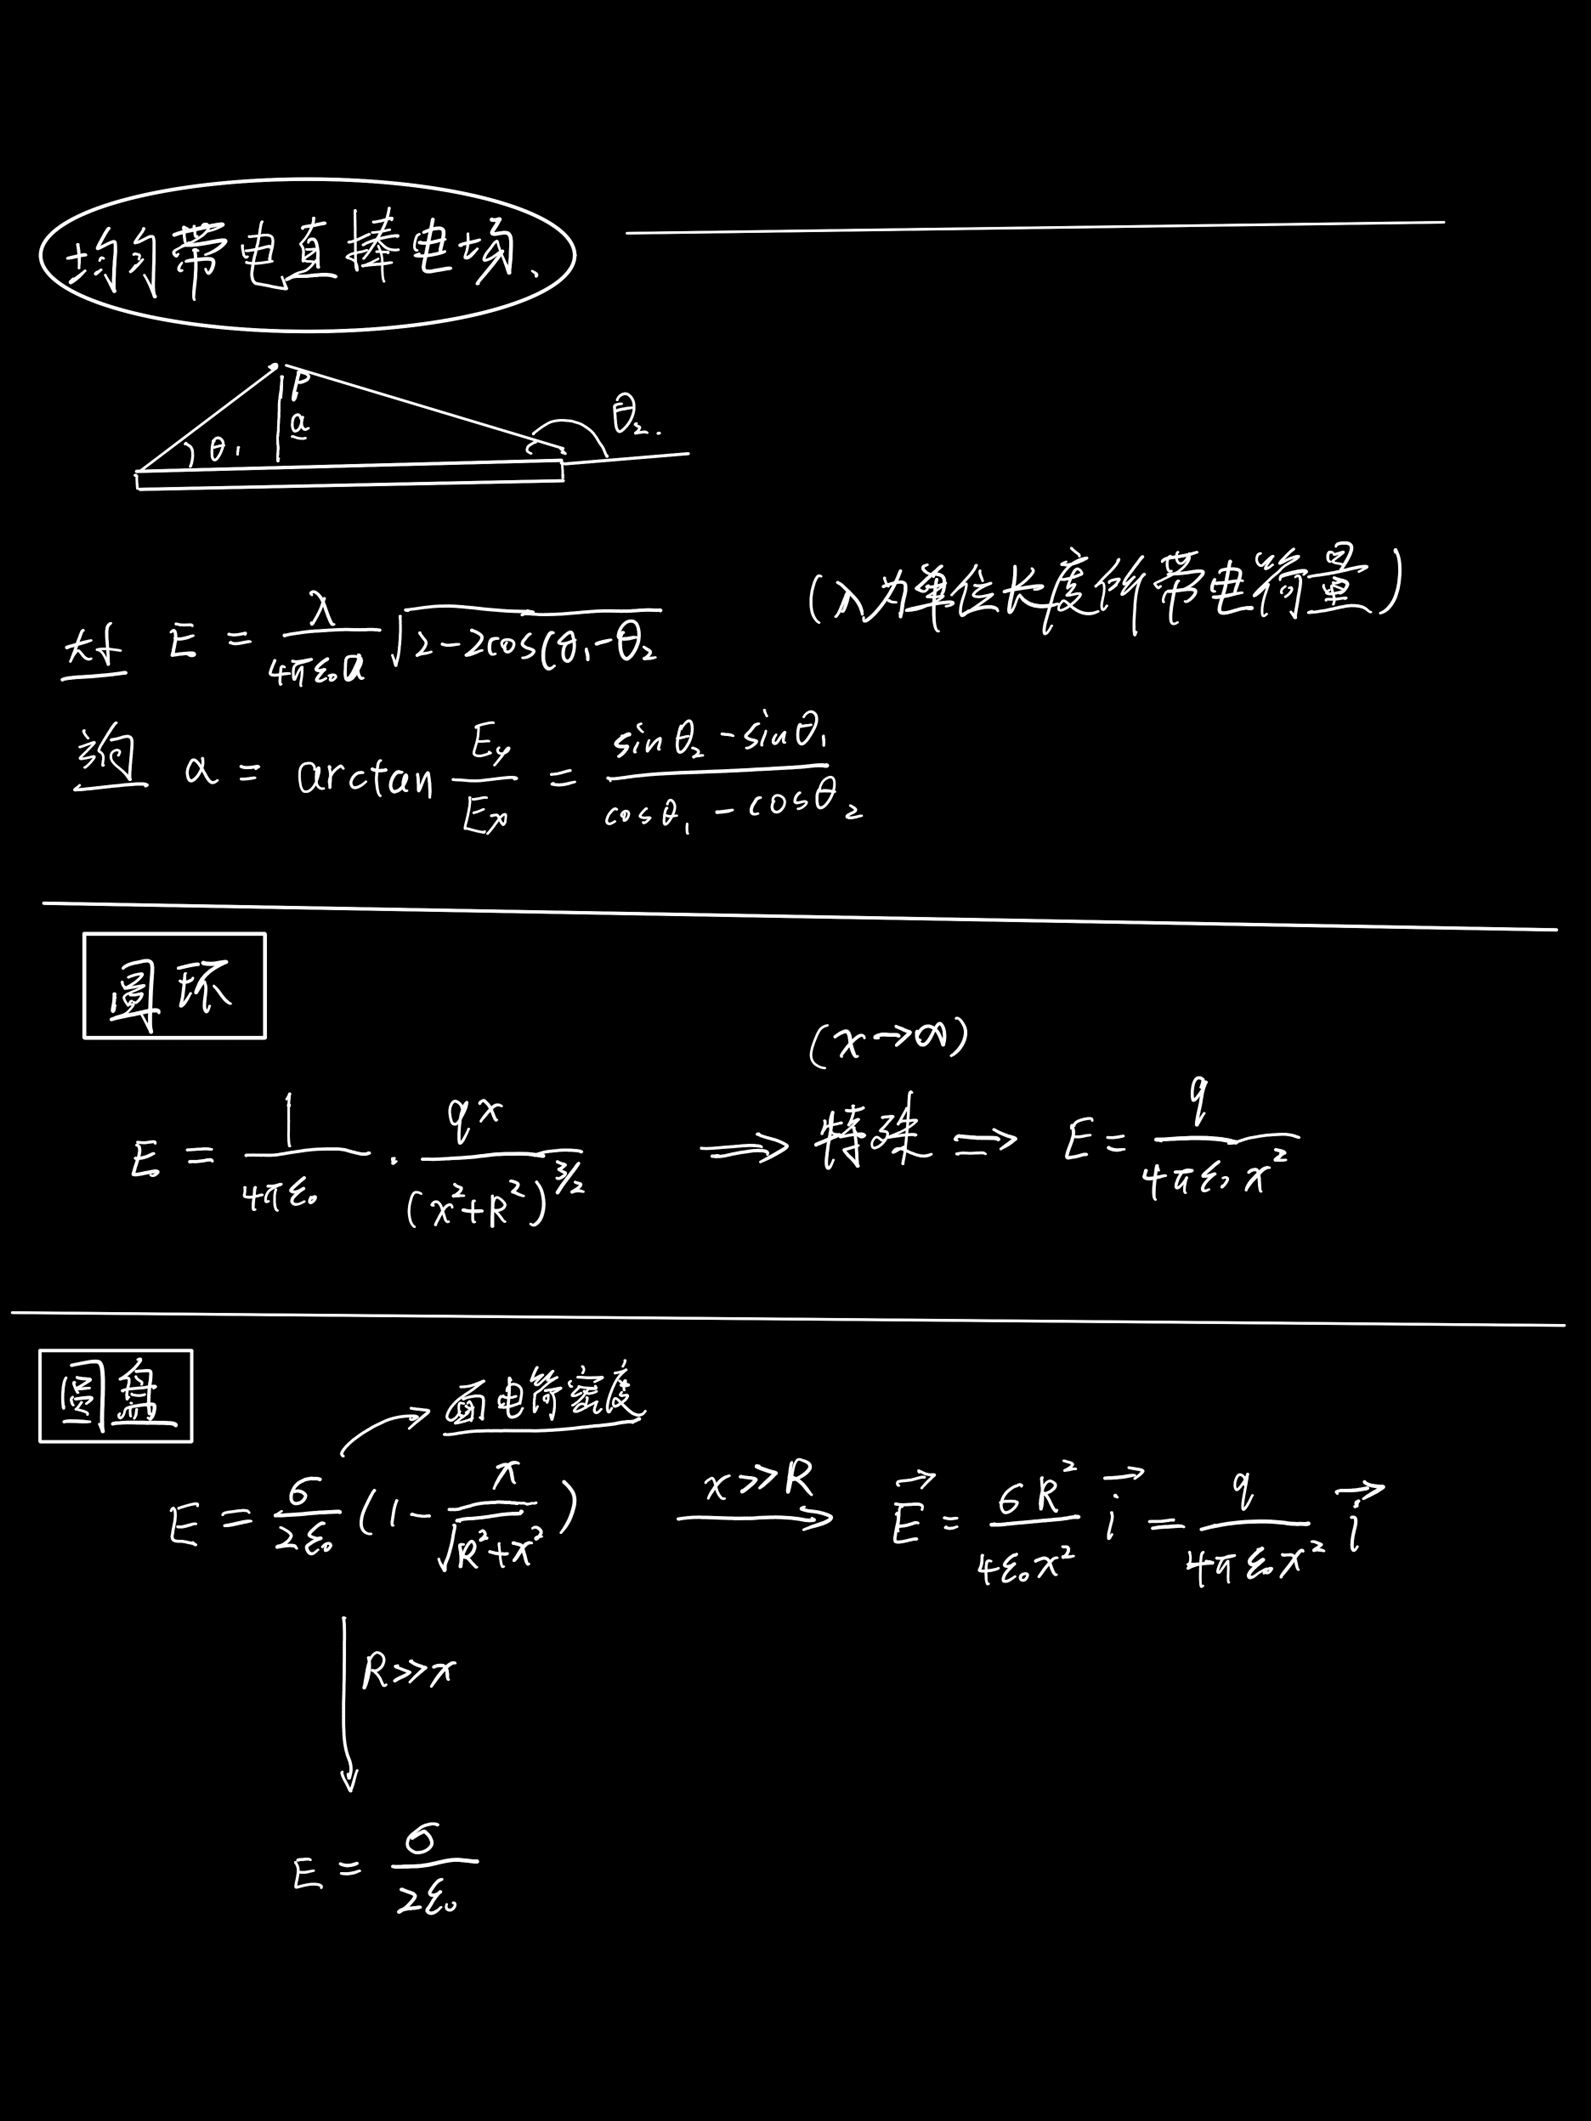 均匀带电直棒电场、
P
a
θ₁
θ₂.
(λ为单位长度所带电荷量)
大小 E = λ/(4πε₀a) √(2-2cos(θ₁-θ₂
方向 α = arctan Ey/Ex = (sinθ₂-sinθ₁)/(cosθ₁-cosθ₂)
圆环
(x→∞)
E = 1/(4πε₀) · qx/(x²+R²)^(3/2) ⇒ 特殊 ⇒ E = q/(4πε₀x²)
圆盘
面电荷密度
E = σ/(2ε₀) (1 - x/√(R²+x²)) x>>R → E⃗ = σR²/(4ε₀x²) i⃗ = q/(4πε₀x²) i⃗
R>>x
E = σ/(2ε₀)